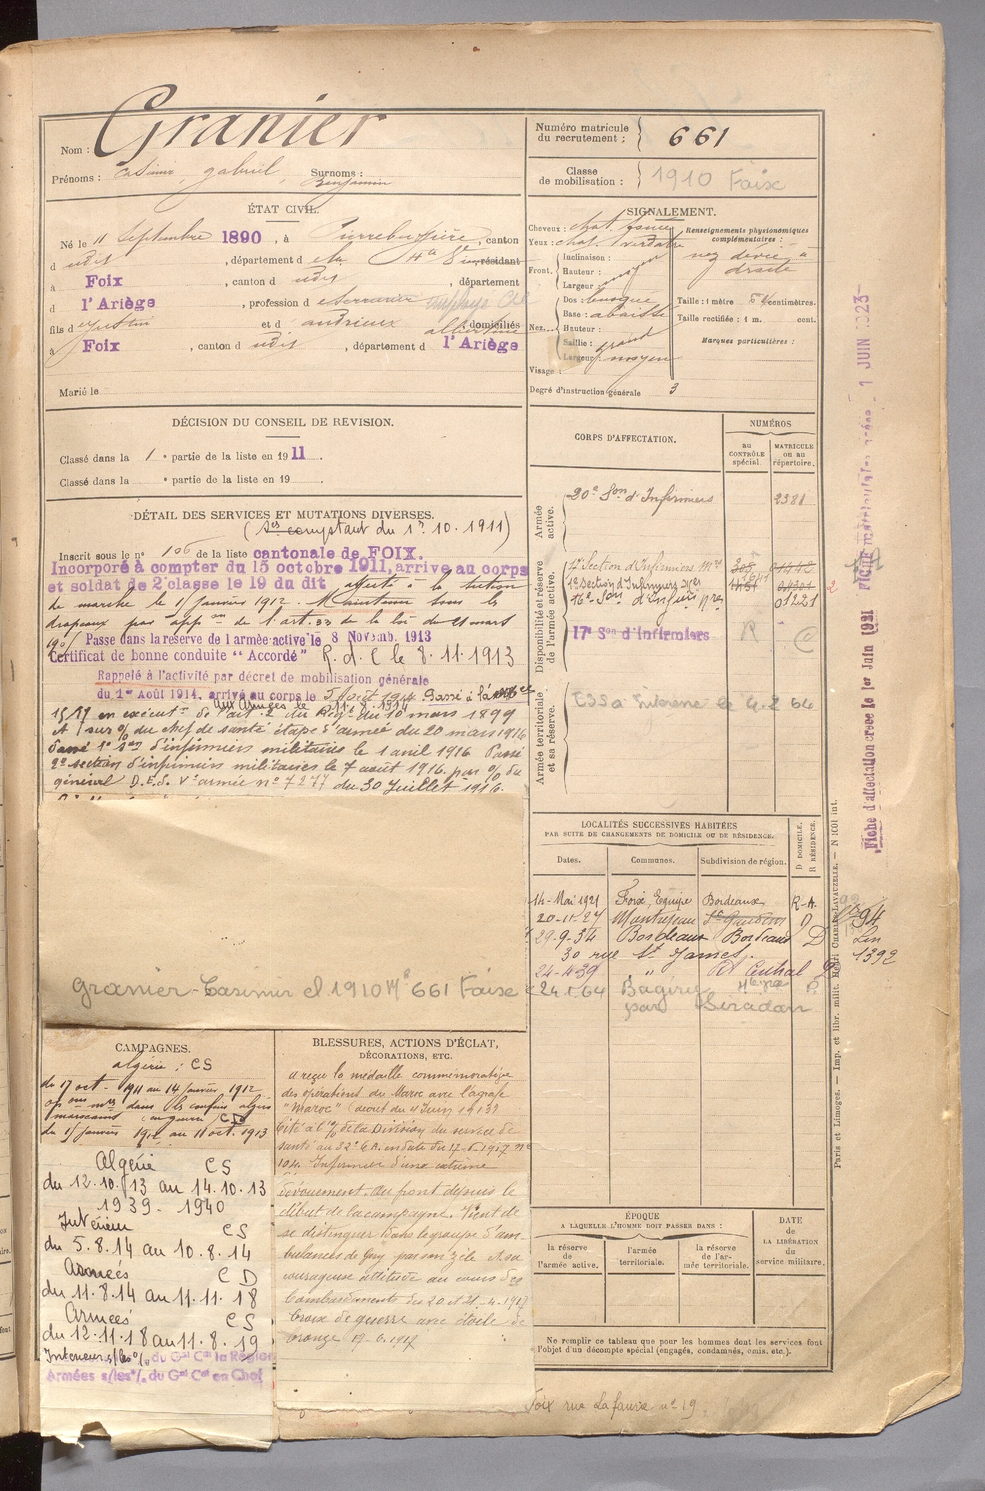 Nom : Granier
Prénoms : Casimir, gabriel, Surnoms :
Benjamin
Numéro matricule du recrutement : 661
Classe de mobilisation : 1910 Foix
ÉTAT CIVIL.
Né le 11 Septembre 1890, à Pierrebuffière, canton
d udit, département d , résidant
à Foix, canton d udit, département
d l'Ariège, profession d
fils d Justin et d andrieux albertine, domiciliés
à Foix, canton d udit, département d l'Ariège
Marié le
SIGNALEMENT.
Cheveux : chat. foncé
Yeux : chat. verdatre
Front. Inclinaison :
Hauteur :
Largeur :
Nez. Dos : busqué
Base : abaissé
Hauteur :
Saillie : grand
Largeur : moyen
Visage :
Renseignements physionomiques complémentaires :
nez dévié à
droite
Taille : 1 mètre centimètres.
Taille rectifiée : 1 m. cent.
Marques particulières :
Degré d'instruction générale 3
DÉCISION DU CONSEIL DE REVISION.
Classé dans la 1e partie de la liste en 1911.
Classé dans la e partie de la liste en 19 .
DÉTAIL DES SERVICES ET MUTATIONS DIVERSES.
(Ses comptant du 1er 10. 1911)
Inscrit sous le n° 106 de la liste cantonale de FOIX.
Incorporé à compter du 15 octobre 1911, arrive au corps
et soldat de 2e classe le 19 du dit affecté à la section
de marche le 15 Janvier 1912. Maintenu sous les
drapeaux par appon de l'art. 33 de la loi de 21 mars
1905 Passe dans la réserve de l'armée active le 8 Novemb. 1913
Certificat de bonne conduite "Accordé" R.d.C le 8.11.1913
Rappelé à l'activité par décret de mobilisation générale
du 1er Août 1914, arrivé au corps le 5 août 1914 Passé à
aux Armées le 11.8.1914
en exécutn de l'art. 2 du Régt du 10 mars 1899
sur % du chef de santé étape 5e armée du 20 mars 1916
Passé 1e son d'infirmiers militaires le 1 avril 1916 Passé
2e section d'infirmiers militaires le 7 août 1916. par % du
général D.E.S. Ve armée n° 7277 du 30 Juillet 1916.
Granier Casimir cl 1910 Me 661 Foix
CORPS D'AFFECTATION.
NUMÉROS
au CONTRÔLE spécial.
MATRICULE OU au répertoire.
Armée active.
20e Son d'Infirmiers 2381
Disponibilité et réserve de l'armée active.
Section d'Infirmiers Mres
1e Section d'Infirmiers Mres
16e Son d'Infiers Mres 01221
17e Son d'infirmiers R C
Armée territoriale et sa réserve.
LOCALITÉS SUCCESSIVES HABITÉES
PAR SUITE DE CHANGEMENTS DE DOMICILE OU DE RÉSIDENCE.
Dates. Communes. Subdivision de région. D DOMICILE. R RÉSIDENCE.
14- Mai 1921 Foix, Equipe Bordeaux R-A.
20-11-27 Montrejeau St Gaudens D
29-9-34 Bordeaux Bordeaux D
30 rue St James.
24-4-39 " " Rt Central D
24.1.64 Bagiry Hte Gne R
par Siradan
94
1392
CAMPAGNES.
algérie : CS
du 17 oct- 1911 au 14 Janvier 1912
opons mres dans les confins algéro
marocains en guerre CD
du 15 Janvier 1912 au 11 oct. 1913
Algérie CS
du 12.10.13 au 14.10.13
1939-1940
Intérieur CS
du 5.8.14 au 10.8.14
Armées CD
du 11.8.14 au 11.11.18
Armées CS
du 12.11.18 au 11.8.19
Intérieur s/les % du Gal Ct la Région
Armées s/les % du Gal Ct en Chef
BLESSURES, ACTIONS D'ÉCLAT,
DÉCORATIONS, ETC.
a reçu la médaille commémorative
des opérations du Maroc avec l'agrafe
"Maroc" (décret du 4 Juin 1913)
Cité à l'% de la Division du service de
santé au 32e C.A. en date du 17-6-1917 n°
104. Infirmier d'un extrême
dévouement, au front depuis le
début de la campagne. Vient de
se distinguer dans le groupe d'am
bulances de Guy par son zèle et sa
courageuse attitude au cours des
bombardements des 20 et 21-4-1917
Croix de guerre avec étoile de
bronze 17-6-1917
ÉPOQUE
A LAQUELLE L'HOMME DOIT PASSER DANS :
la réserve de l'armée active.
l'armée territoriale.
la réserve de l'armée territoriale.
DATE DE LA LIBÉRATION du service militaire.
Ne remplir ce tableau que pour les hommes dont les services font
l'objet d'un décompte spécial (engagés, condamnés, omis, etc.).
Foix rue Lafaure n° 19
Fiche d'affectation créée le 1er Juin 1921
1 JUIN 1923
Paris et Limoges. — Imp. et libr. milit. Henri CHARLES-LAVAUZELLE. —